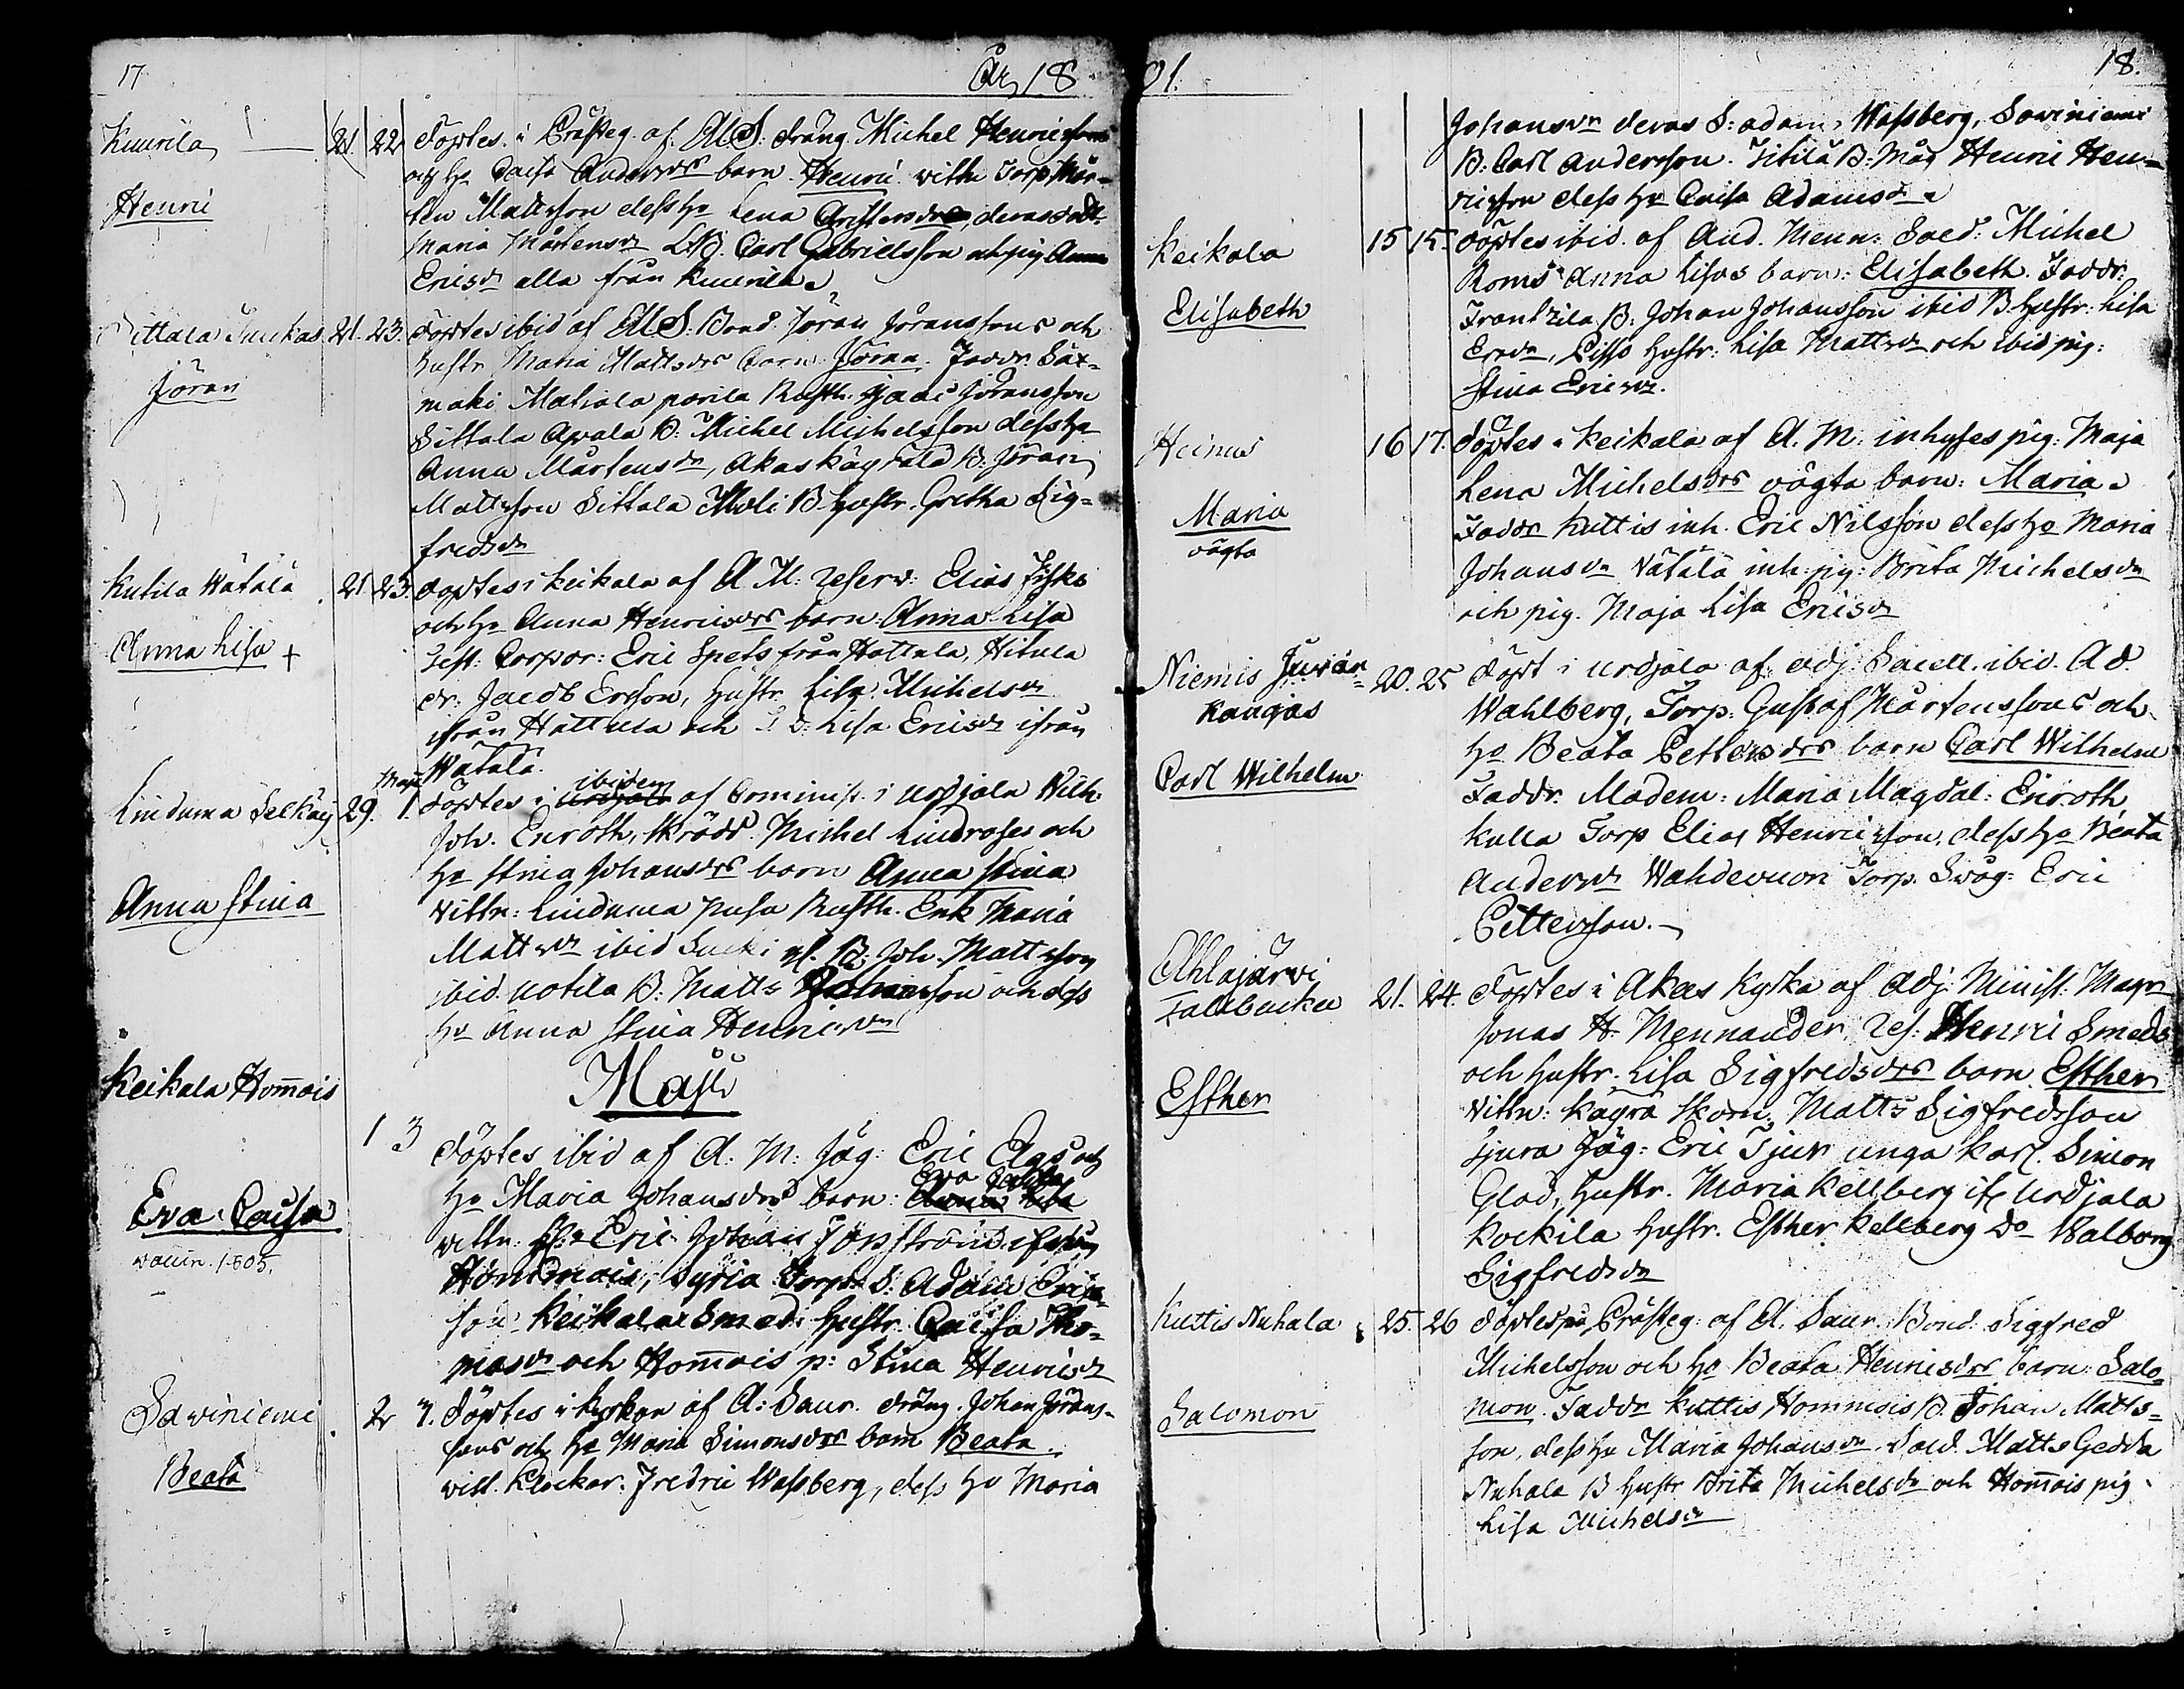 17.
År 18
Kuurila 21. 22. Döptes i Prästeg. af A. S. dräng Michel Henricssons
och H:o Caisa Andersdrs barn. Henric. wittn Torp. Mår-
Henric
ten Mattsson dess H:o Lena Christersdr, deras dott.
Maria Mårtensdr Carl Gabrielsson och pig Anna
Ericsdr alla från Kuurila.
Sittala Juckas 21. 23. Döptes ibid af A S: Bond. Jöran Jöranssons och
Hustr Maria Mattsdrs barn: Jöran. Faddr. Säx-
Jöran
mäki Matiala pärila Rusth. Isaac Jöransson
Sittala Apala B: Michel Michelsson dess H:o
Anna Mårtensdr, Akas Käyrälä B: Jöran
Mattsson Sittala Moli B. Hustr. Gretha Sig-
fredsdr
Kutila Wätälä 21. 23. Döptes i Keikala af A M: reserv: Elias Fisks
och H:o Anna Henricsdrs barn: Anna Lisa
Anna Lisa +
Test: Corpor: Eric Spets från Hattula, Hitula
dr: Jacob Ersson, Hustr. Lisa Michelsdr
ifrån Hattula och Lisa Ericsdr ifrån
Wätälä.
Maji
ibidem
Linduma Selkäy 29. 1. Döptes i Urdjala af Cominist. i Urdjala Wilh.
Joh. Enroth, skrädd. Michel Lindroses och
H:o Stina Johansdrs barn Anna Stina
Anna Stina
Wittn: Linduma pusa Rusth. Enk Maria
Mattsdr ibid Sucki B: Joh. Mattsson
ibid. Uotila B: Matts Johansson och dess
H:o Anna Stina Henricsdr
Maji
Keikala Hom̄ois
1 3 Döptes ibid af A. M. Jäg: Eric Ags och
Eva Caisa
H:o Maria Johansdrs barn: Anna Lisa
Eva Caisa
wittn: Eric Johan Jöpstrand ifrån
waccin. 1805.
Hommois, Syria Torps. S: Adam Erics-
son Keikala Smed: Hustr. Caisa Tho-
masdr och Hom̄ois p: Stina Henricsdr
Sawiniemi 2 3. Döptes i Kyrkan af A: Saur. dräng. Johan Jörans-
sons och H:o Maria Simonsdrs barn Beata.
Beata
witt. Klockar. Fredric Wassberg, dess H:o Maria
01.
18.
Johansdr deras S: adam Wassberg, Sawiniemi
B: Carl andersson. Titilä B: Måg Henric Hen-
ricsson dess H:o Caisa Adamsdr
Keikala 15 15. Döptes ibid. af And. Menn: Sold: Michel
Roms Anna Lisas barn: Elisabeth. Faddr.
Elisabeth
Frantzila B: Johan Johansson ibid B Hustr: Lisa
Ersdr, Hustr: Lisa Mattsdr och ibid pig:
Stina Ericsdr.
Heinus 16 17. Döptes i Keikala af A. M: inhyses pig: Maja
Lena Michelsdrs oägta barn: Maria.
Maria
oägta
Faddr Kuttis inh. Eric Nilsson dess H:o Maria
Johansdr Nätälä inh: pig: Brita Michelsdr
och pig. Maja Lisa Ericsdr
Niemis Juwan- 20. 25 Döpt i Urdjala af adj. Sacell. ibid. Ad
kangas
Wahlberg, Torp. Gustaf Mårtenssons och
H:o Beata Pettersdrs barn Carl Wilhelm
Carl Wilhelm
Faddr. Madem: Maria Magdal: Enroth
Kulla Torp Elias Henricsson, dess H:o Beata
Andersdr Wahdevuori Torp. Swåg: Eric
Pettersson.
Ahlajärvi
Tallbacka 21. 24. Döptes i Akas Kyrka af Adj: Minist. Magr
Jonas H. Mennander, res: Henric Smeds
och Hustr. Lisa Sigfredsdrs barn Esther
Esther
Wittn: Käyrä Skom: Matts Sigfredsson
Tjura Jäg: Eric Tjur unga karl. Simon
Glad, Hustr. Maria Kellberg if Urdjala
Kockila Hustr. Esther Kellberg Do Walborg
Sigfredsdr
Kuttis Nuhala 25. 26 Döptes på Prästeg: af A. Saur. Bond Sigfred
Michelsson och H:o Beata Henricsdrs barn: Salo-
Salomon
mon. Faddr Kuttis Hommois B. Johan Matts-
son, dess H:o Maria Johansdr. Sold. Matts Gedda
Nuhala B Hustr Brita Michelsdr och Hom̄ois pig
Lisa Michelsdr